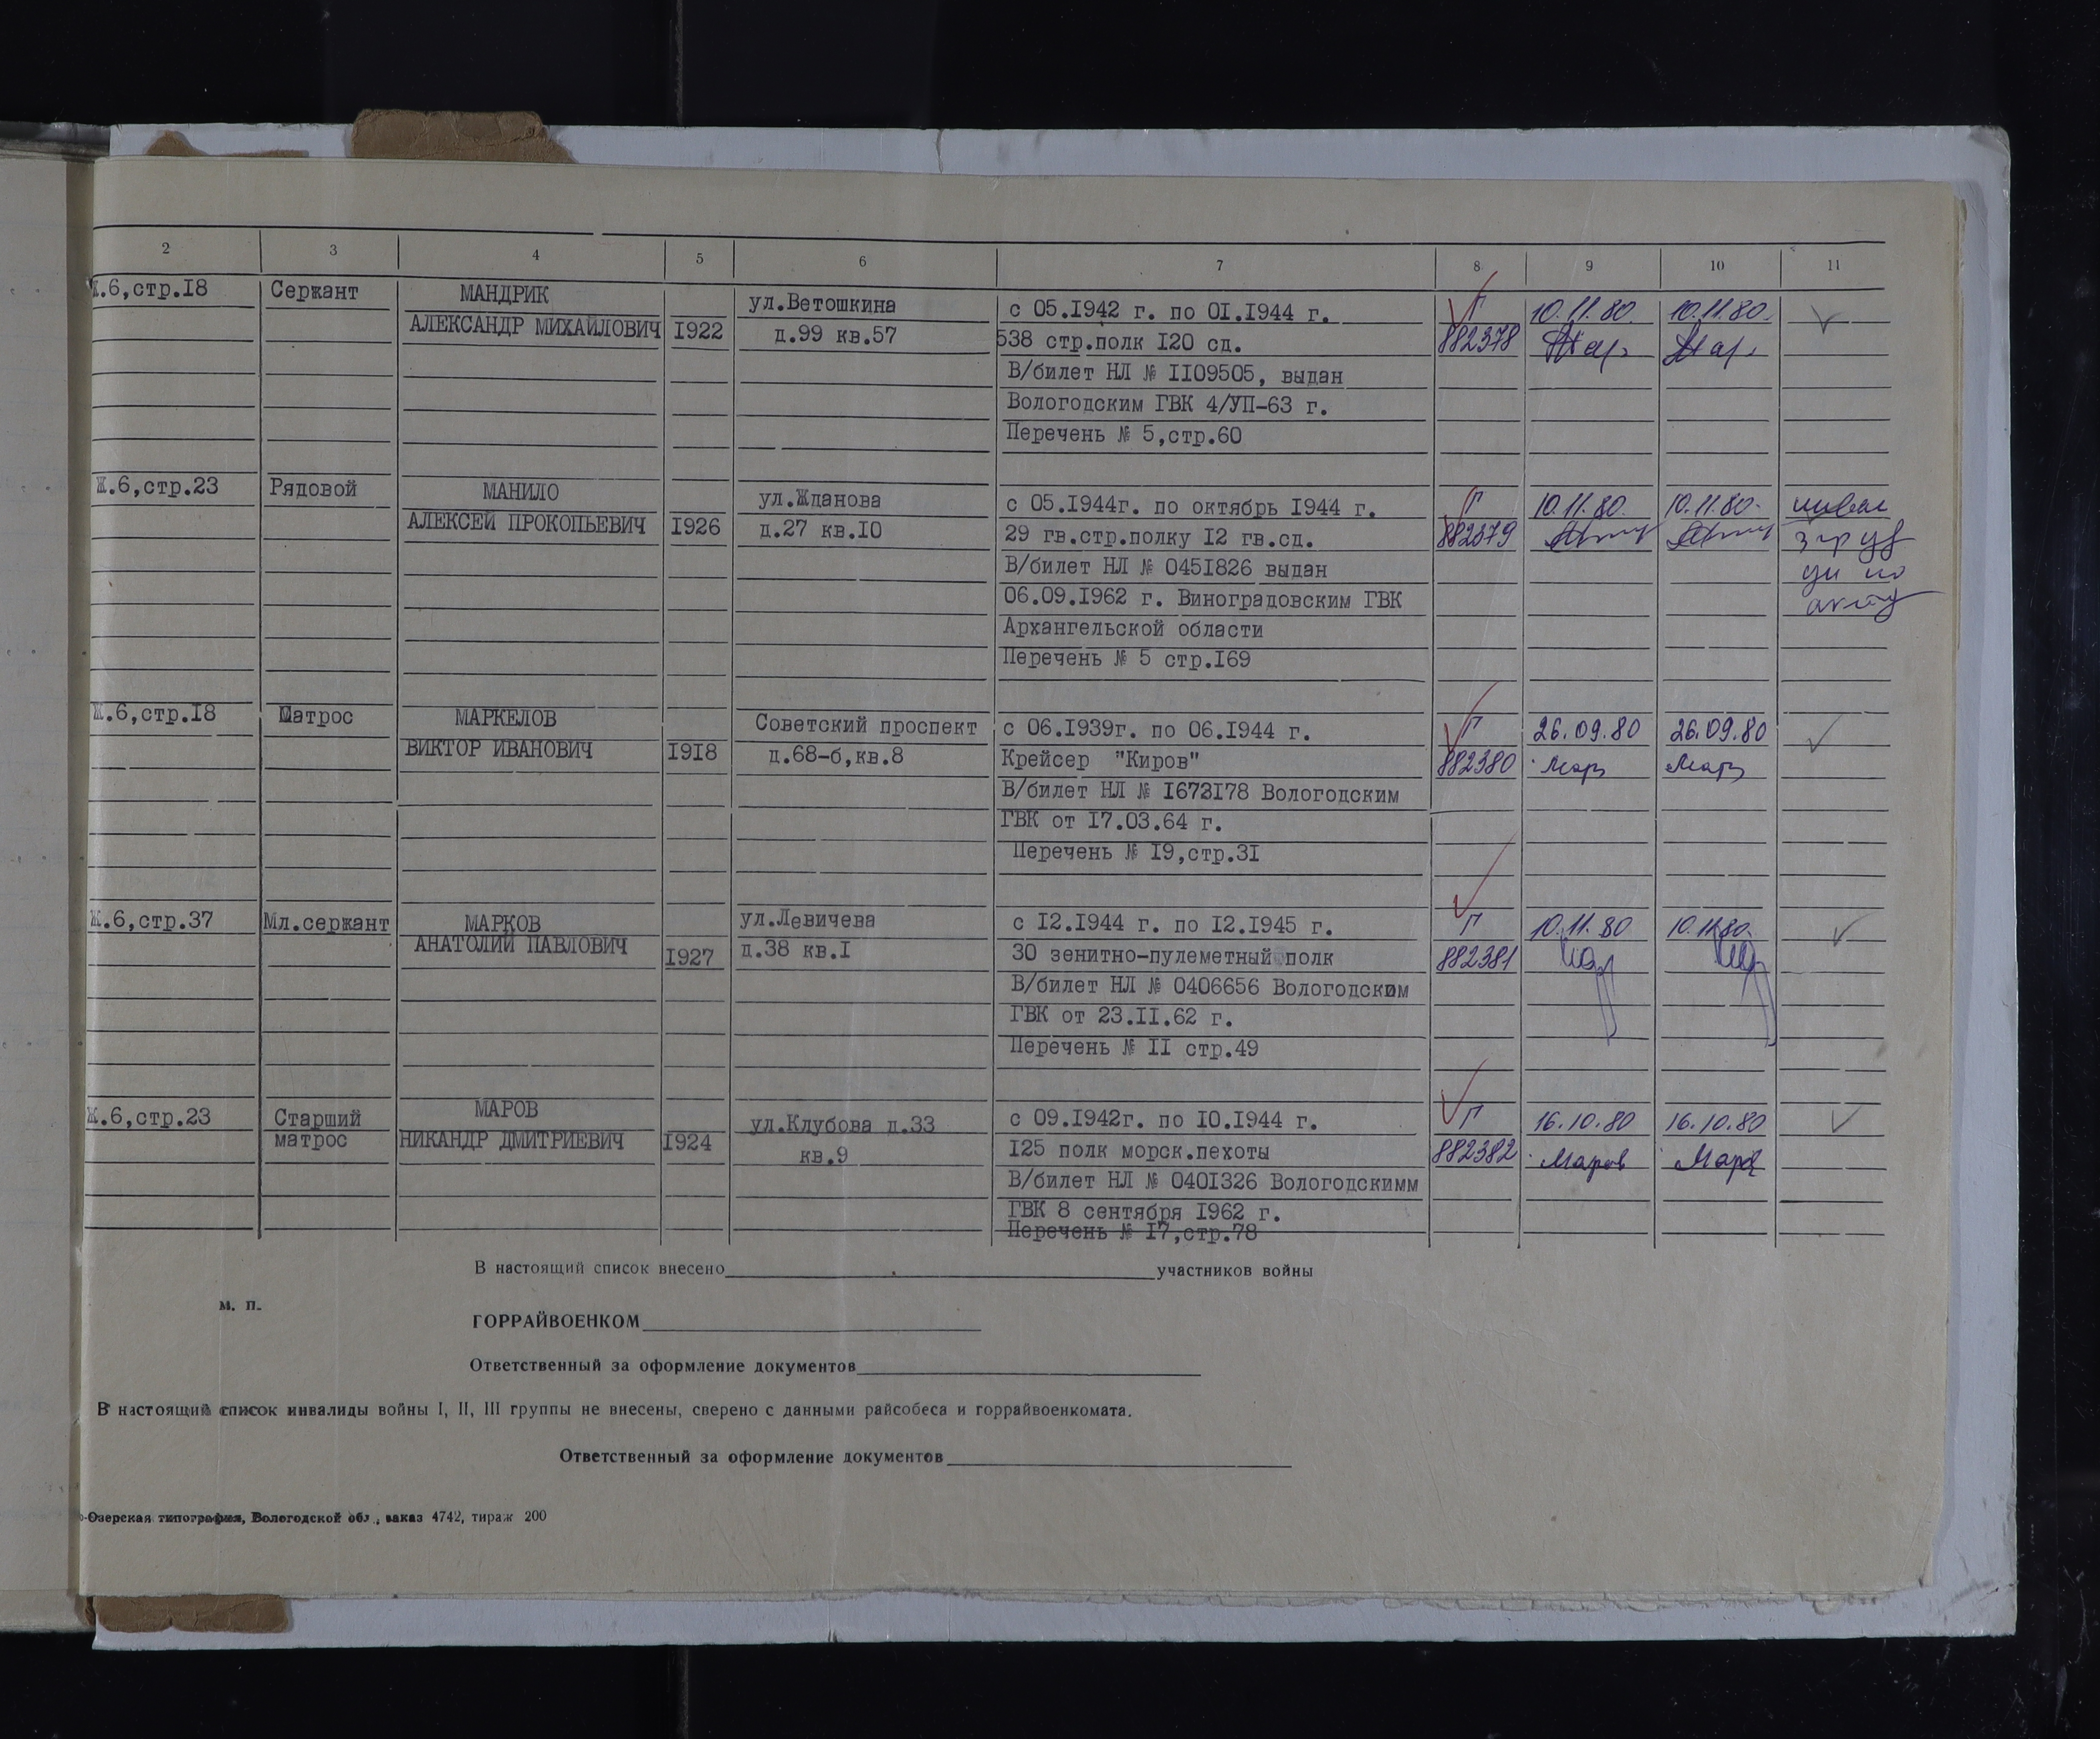 2 3 4 5 6 7 8 9 10 11
Ж.6,стр.18 Сержант МАНДРИК ул.Ветошкина с 05.1942 г. по 01.1944 г. Г 10.11.80. 10.11.80.
АЛЕКСАНДР МИХАЙЛОВИЧ 1922 д.99 кв.57 538 стр.полк 120 сд. 882378
В/билет НЛ № 1109505, выдан
Вологодским ГВК 4/УП-63 г.
Перечень № 5,стр.60
Ж.6,стр.23 Рядовой МАНИЛО ул.Жданова с 05.1944г. по октябрь 1944 г. Г 10.11.80. 10.11.80.
АЛЕКСЕЙ ПРОКОПЬЕВИЧ 1926 д.27 кв.10 29 гв.стр.полку 12 гв.сд. 882379
В/билет НЛ № 0451826 выдан
06.09.1962 г. Виноградовским ГВК акту
Архангельской области
Перечень № 5 стр.169
Ж.6,стр.18 Матрос МАРКЕЛОВ Советский проспект с 06.1939г. по 06.1944 г. Г 26.09.80 26.09.80
ВИКТОР ИВАНОВИЧ 1918 д.68-б,кв.8 Крейсер "Киров" 882380 Мар
В/билет НЛ № 1673178 Вологодским
ГВК от 17.03.64 г.
Перечень № 19,стр.31
Ж.6,стр.37 Мл.сержант МАРКОВ ул.Левичева с 12.1944 г. по 12.1945 г. Г 10.11.80 10.11.80.
АНАТОЛИЙ ПАВЛОВИЧ 1927 д.38 кв.1 30 зенитно-пулеметный полк 882381
В/билет НЛ № 0406656 Вологодским
ГВК от 23.11.62 г.
Перечень № 11 стр.49
Ж.6,стр.23 Старший МАРОВ ул.Клубова д.33 с 09.1942г. по 10.1944 г. Г 16.10.80 16.10.80
матрос НИКАНДР ДМИТРИЕВИЧ 1924 кв.9 125 полк морск.пехоты 882382 Маров Маров
В/билет НЛ № 0401326 Вологодскимм
ГВК 8 сентября 1962 г.
Перечень № 17,стр.78
В настоящий список внесено участников войны
м. п.
ГОРРАЙВОЕНКОМ
Ответственный за оформление документов
В настоящий список инвалиды войны I, II, III группы не внесены, сверено с данными райсобеса и горрайвоенкомата.
Ответственный за оформление документов
-Озерская типография, Вологодской обл., заказ 4742, тираж 200